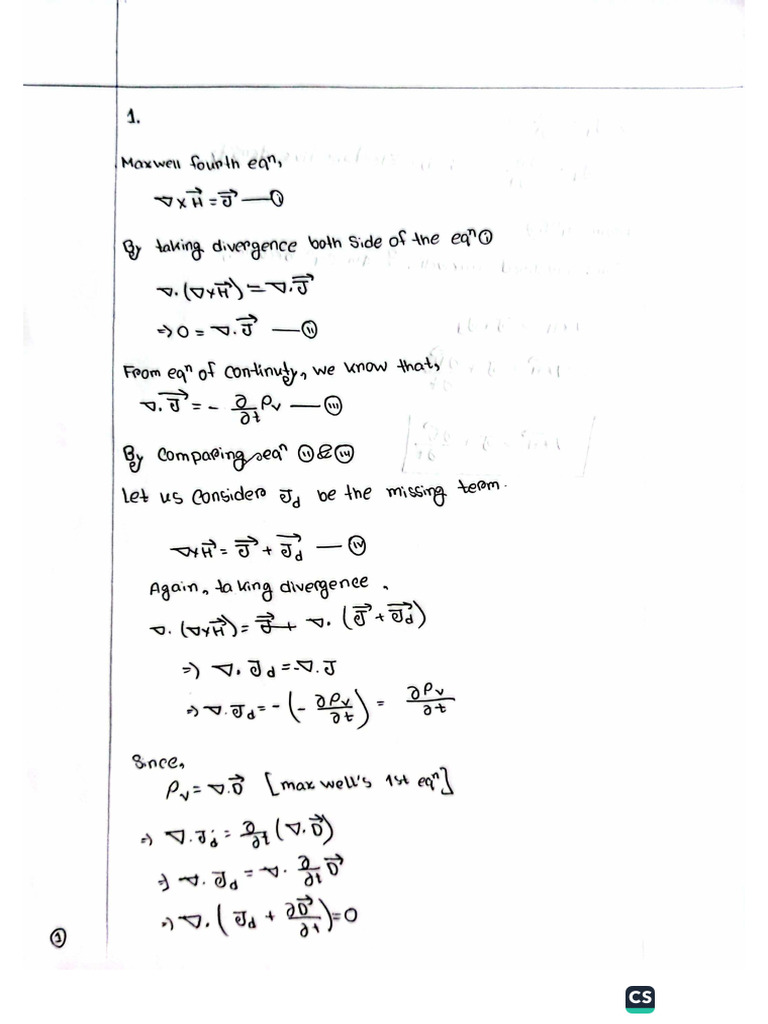 1.
Maxwell fourth eqⁿ,
∇×H⃗ = J⃗ —(i)
By taking divergence both side of the eqⁿ (i)
∇.(∇×H⃗) = ∇.J⃗
⇒ 0 = ∇.J⃗ —(ii)
From eqⁿ of continuty, we know that,
∇.J⃗ = - ∂/∂t ρv —(iii)
By comparing eqⁿ (ii) & (iv)
Let us consider J̄d be the missing term.
∇×H⃗ = J⃗ + J⃗d —(iv)
Again, taking divergence,
∇.(∇×H⃗) = ∇.(J⃗ + J⃗d)
⇒ ∇.J̄d = -∇.J
⇒ ∇.J̄d = -(- ∂ρv/∂t) = ∂ρv/∂t
Since,
ρv = ∇.D⃗ [maxwell's 1st eqⁿ]
⇒ ∇.J̄d = ∂/∂t (∇.D⃗)
⇒ ∇.J̄d = ∇. ∂/∂t D⃗
⇒ ∇.(J̄d + ∂D⃗/∂t) = 0
(1)
CS